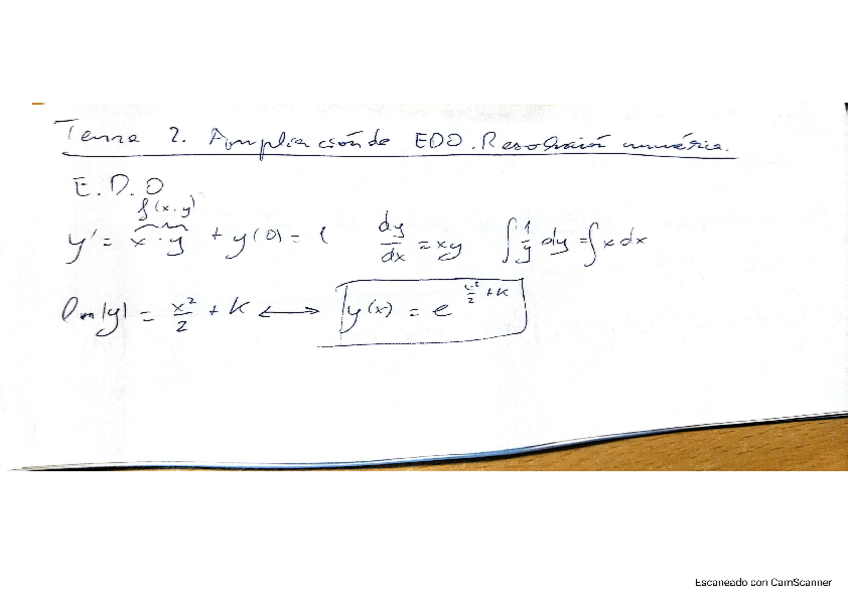 Tema 2. Ampliación de EDO. Resolución numérica.
E.D.O
f(x,y)
y' = x · y + y(0) = 1 dy/dx = xy ∫ 1/y dy = ∫ x dx
ln|y| = x²/2 + K ⟷ y(x) = e^(x²/2 + K)
Escaneado con CamScanner